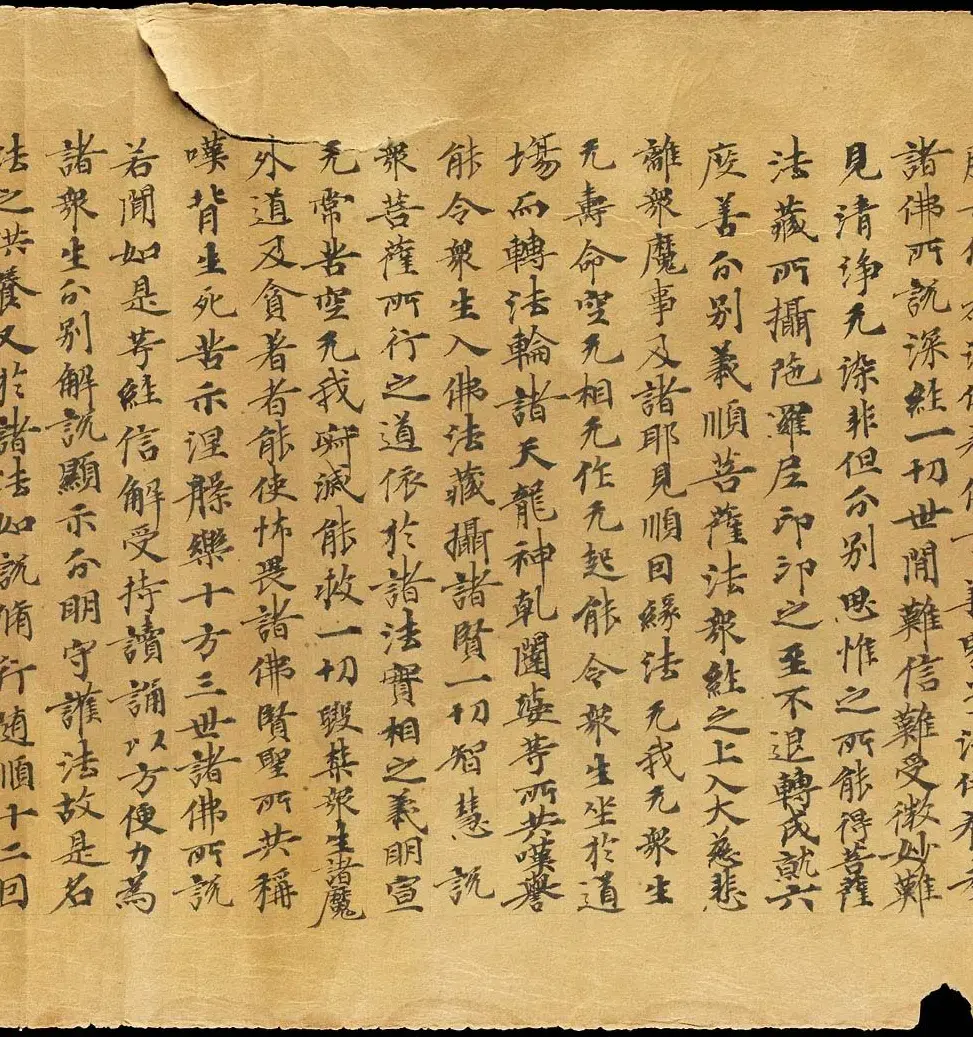 諸佛所說深經一切世間難信難受微妙難
見清淨无染非但分別思惟之所能得菩薩
法藏所攝陁羅尼印印之至不退轉成就六
度善分別義順菩薩法眾經之上入大慈悲
離眾魔事及諸耶見順因緣法无我无眾生
无壽命空无相无作无起能令眾生坐於道
場而轉法輪諸天龍神乹闥婆等所共嘆譽
能令眾生入佛法藏攝諸賢一切智慧說
眾菩薩所行之道依於諸法實相之義明宣
无常苦空无我寂滅能救一切毀禁眾生諸魔
外道及貪著者能使怖畏諸佛賢聖所共稱
嘆背生死苦示涅槃樂十方三世諸佛所說
若聞如是等經信解受持讀誦以方便力為
諸眾生分別解說顯示分明守護法故是名
法之供養又於諸法如說脩行隨順十二因